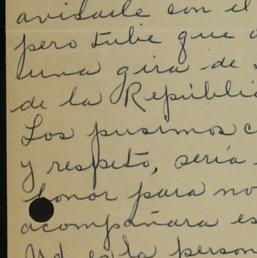 avisarle con el
pero tube que
una gira de
de la Repúbli
Los pusimos c
y respeto, sería
honor para no
acompañara es
Ud es la person